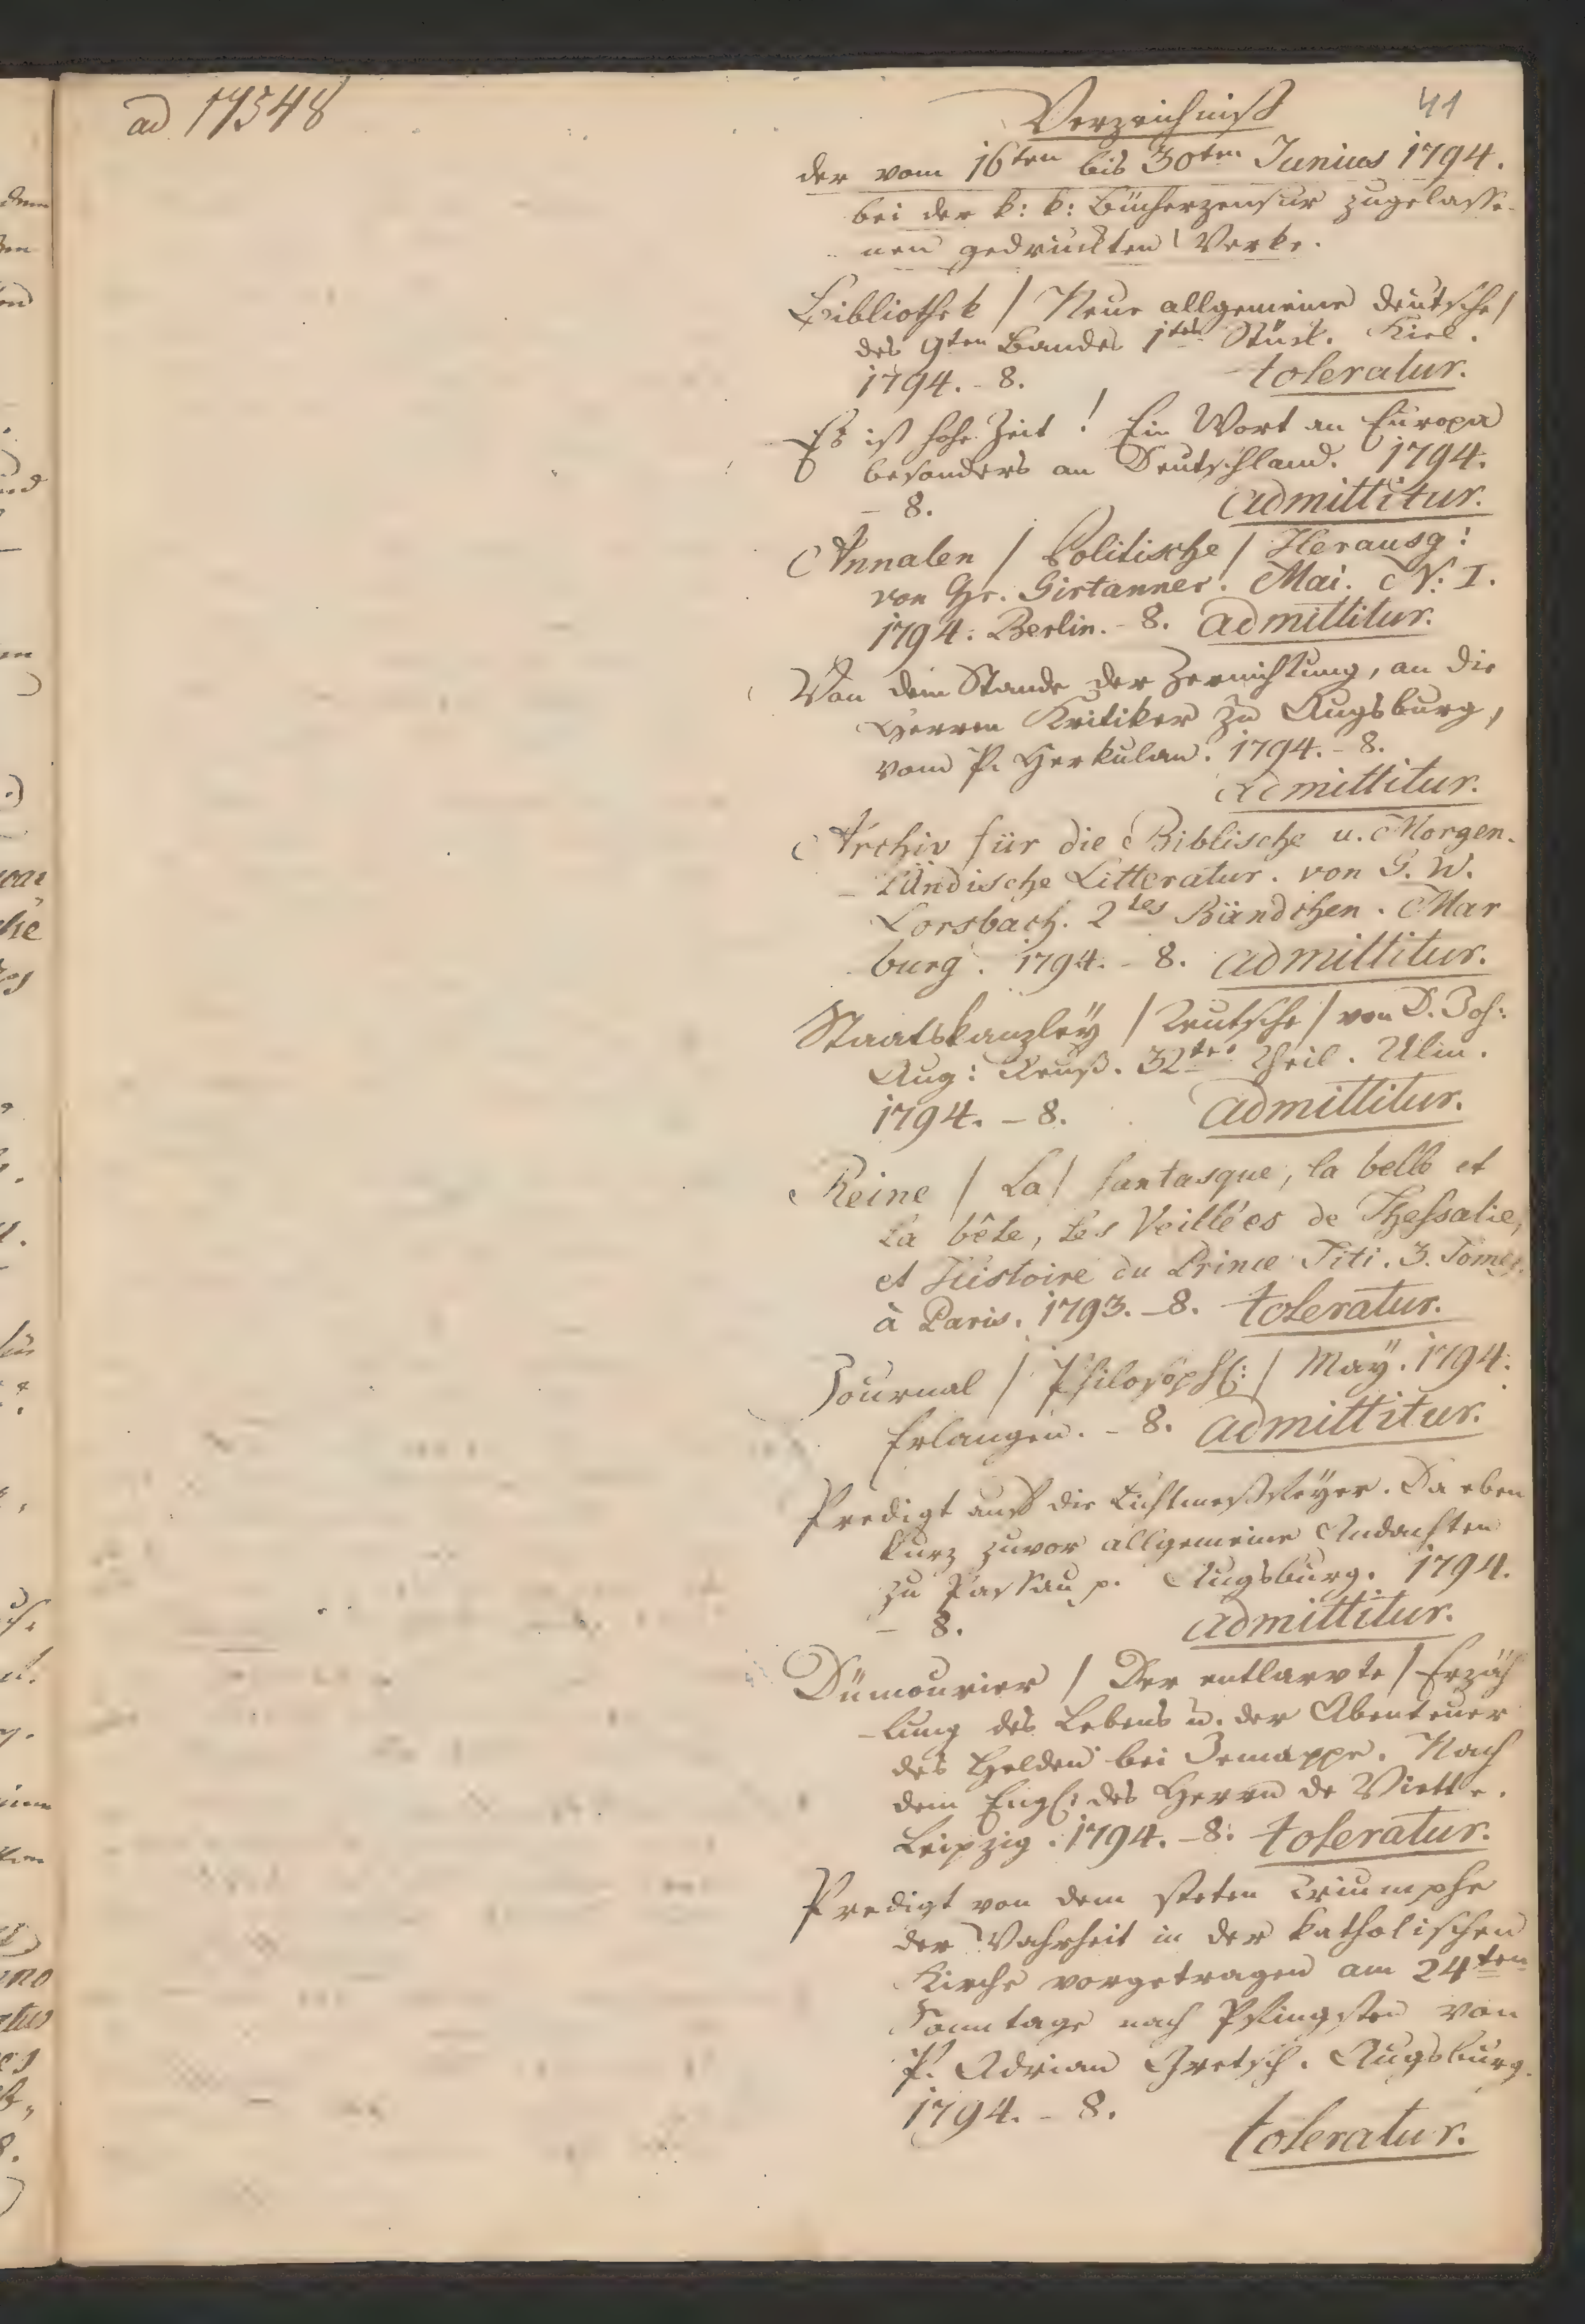 ad 17548
41
Verzeichniß
der vom 16ten bis 30ten Junius 1794.
bei der k: k: Bücherzensur zugelasse-
nen gedruckten Werke.
Bibliothek / Neue allgemeine deutsche /
des 9ten Bandes 1tes Stück. Kiel.
1794. - 8. toleratur.
Es ist hohe Zeit! Ein Wort an Europa
besonders an Deutschland. 1794.
- 8. admittitur.
Annalen / Politische / Herausg:
von Hr. Girtanner. Mai. N: I.
1794. Berlin. - 8. admittitur.
Von dem Stande der Zernichtung, an die
Herren Kritiker zu Augsburg,
vom P. Herkulan. 1794. - 8.
admittitur.
Archiv für die Biblische u. Morgen-
- ländische Litteratur. von G. W.
Lorsbach. 2tes Bändchen. Mar
burg. 1794. - 8. admittitur.
Staatskanzleÿ / Teutsche / von D. Joh:
Aug: Reuß. 32ter Theil. Ulm.
1794. - 8. admittitur.
Reine / La / fantasque, la belle et
la bête, les Veillées de Thessalie,
et Histoire du Prince Titi. 3. Tomes.
à Paris. 1793. - 8. toleratur.
Journal / Philosoph: / Maÿ. 1794.
Erlangen. - 8. admittitur.
Predigt auf die Lichtmeßfeÿer. Da eben
kurz zuvor allgemeine Andachten
zu Passau p. Augsburg. 1794.
- 8. admittitur.
Dümourier / Der entlarvte / Erzäh
- lung des Lebens u. der Abenteuer
des Helden bei Jemappe. Nach
dem Engl: des Herrn de Viette.
Leipzig. 1794. - 8. toleratur.
Predigt von dem steten Triumphe
der Wahrheit in der katholischen
Kirche vorgetragen am 24ten
Sonntage nach Pfingsten von
P. Adrian Gretsch. Augsburg.
1794. - 8.
toleratur.